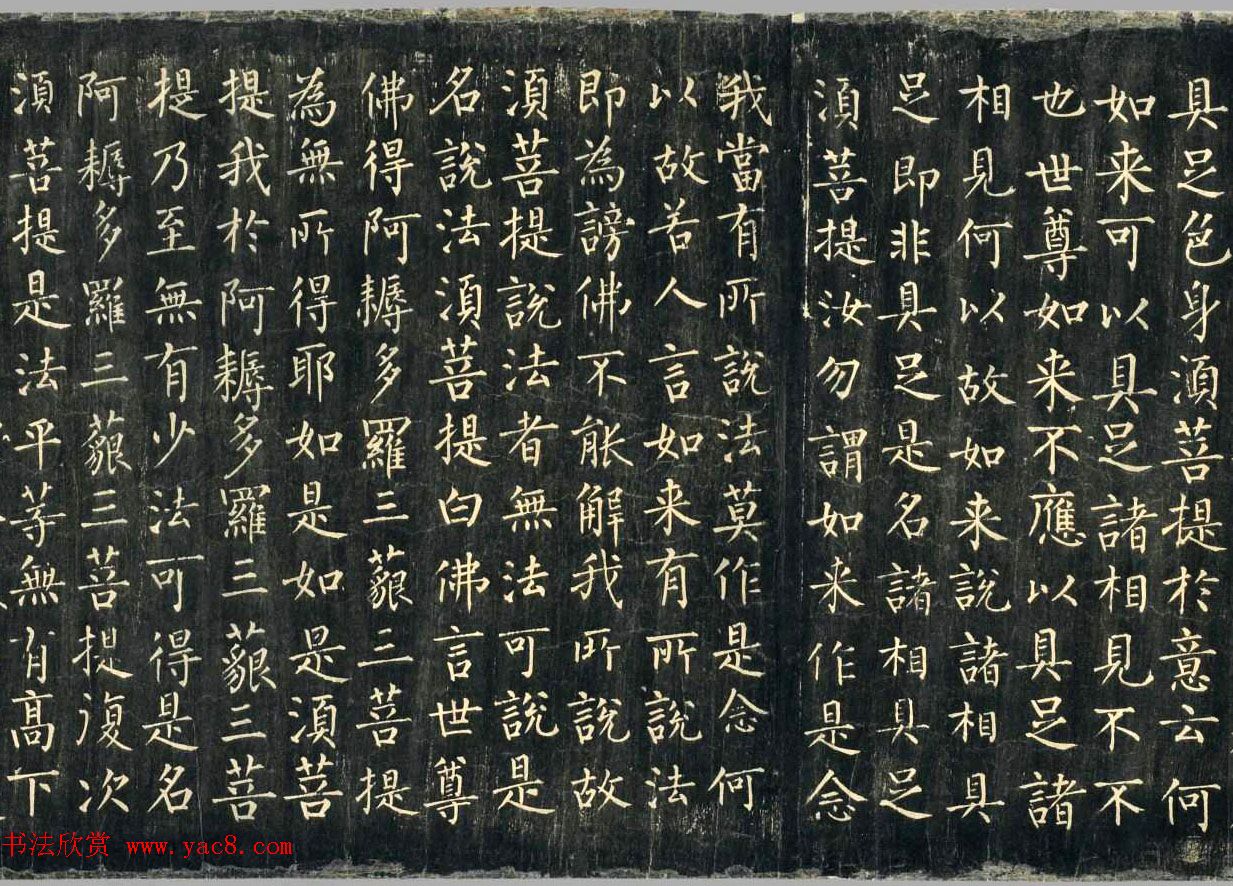 具足色身須菩提於意云何
如来可以具足諸相見不不
也世尊如来不應以具足諸
相見何以故如来說諸相具
足即非具足是名諸相具足
須菩提汝勿謂如来作是念
我當有所說法莫作是念何
以故若人言如来有所說法
即為謗佛不能解我所說故
須菩提說法者無法可說是
名說法須菩提白佛言世尊
佛得阿耨多羅三藐三菩提
為無所得耶如是如是須菩
提我於阿耨多羅三藐三菩
提乃至無有少法可得是名
阿耨多羅三藐三菩提復次
須菩提是法平等無有高下
书法欣赏 www.yac8.com